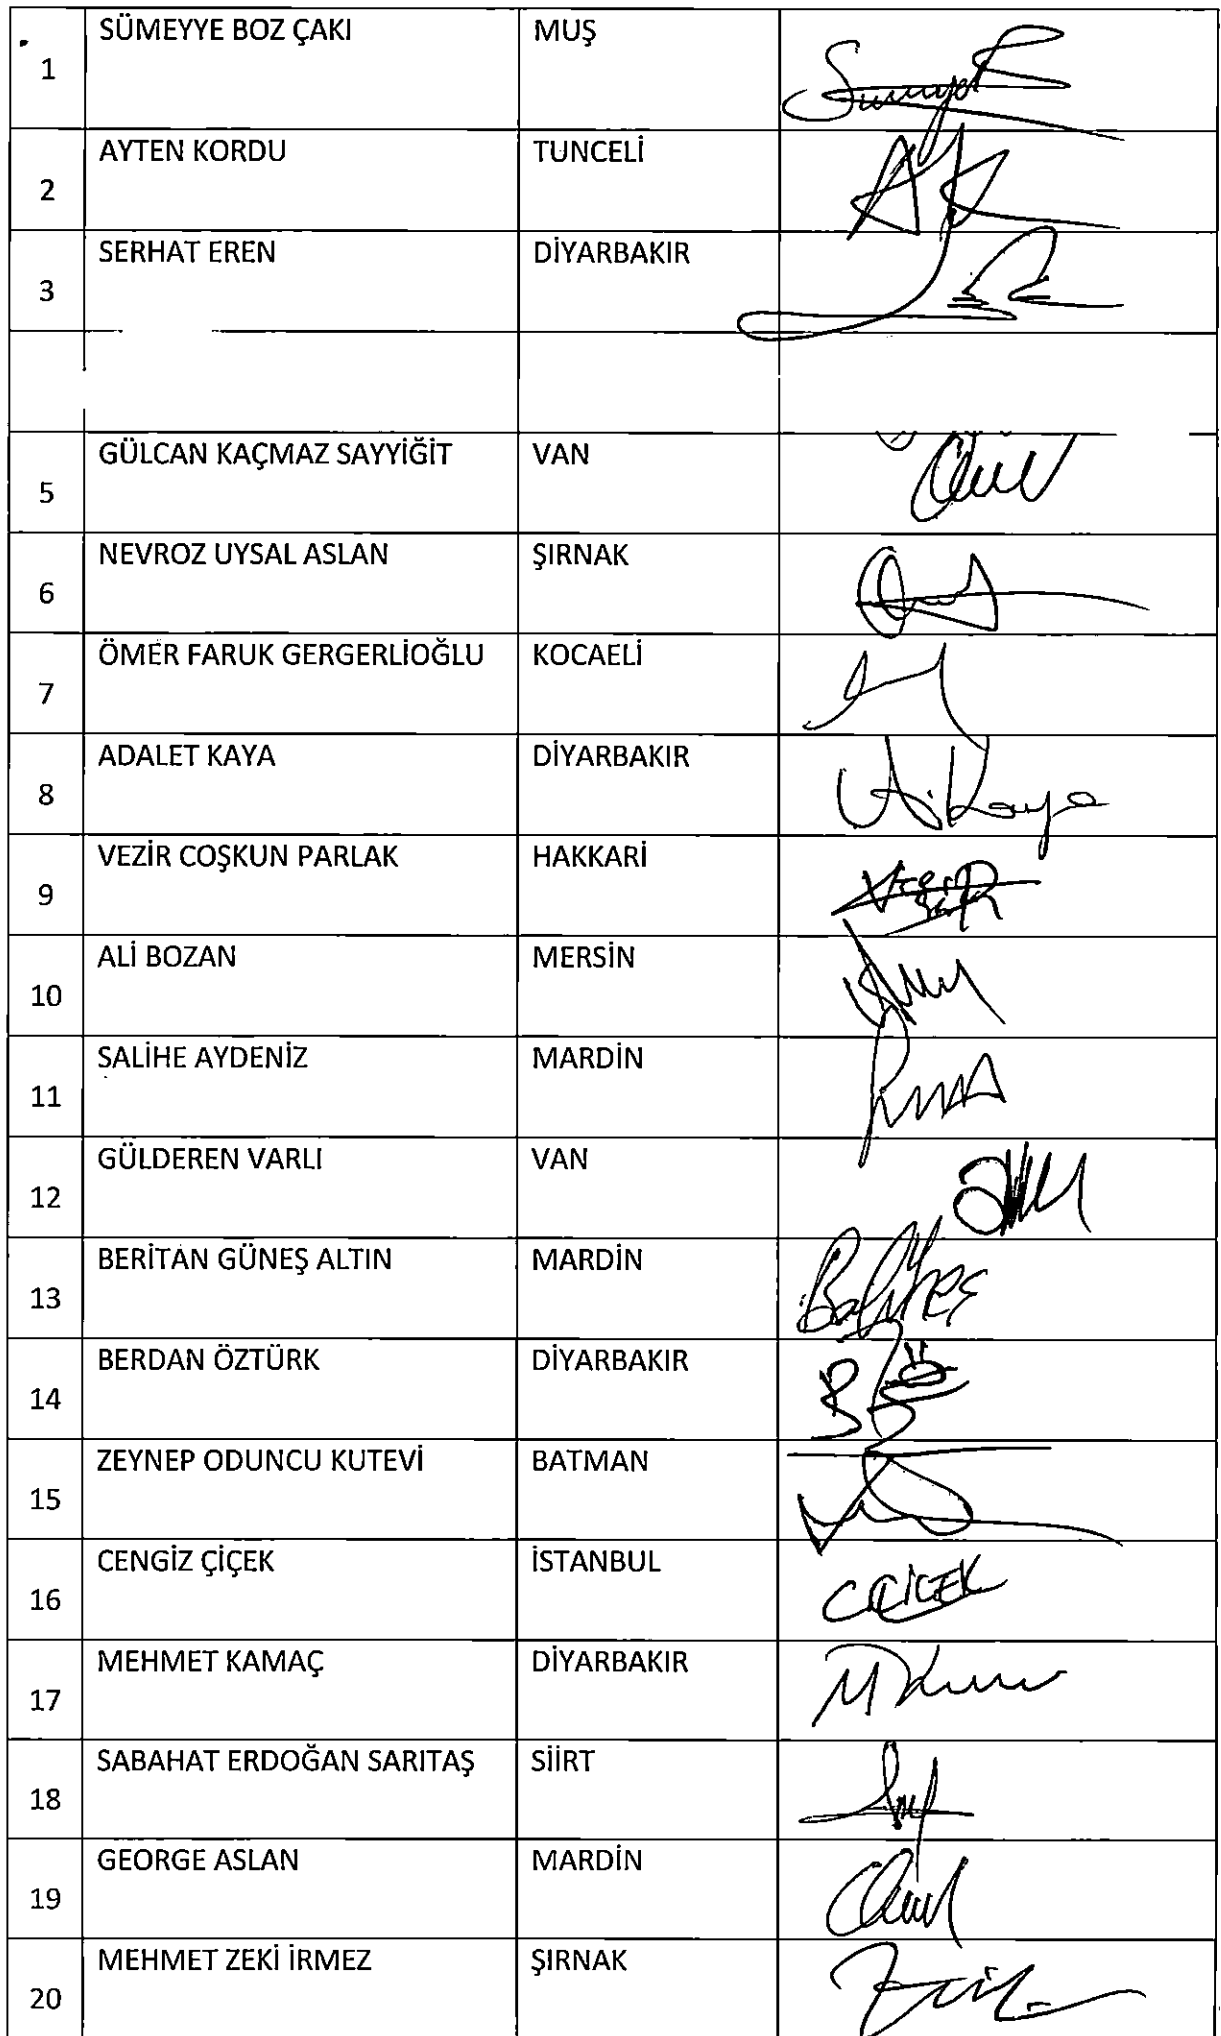 1 SÜMEYYE BOZ ÇAKI MUŞ
2 AYTEN KORDU TUNCELİ
3 SERHAT EREN DİYARBAKIR
5 GÜLCAN KAÇMAZ SAYYİĞİT VAN
6 NEVROZ UYSAL ASLAN ŞIRNAK
7 ÖMER FARUK GERGERLİOĞLU KOCAELİ
8 ADALET KAYA DİYARBAKIR A.Kaya
9 VEZİR COŞKUN PARLAK HAKKARİ
10 ALİ BOZAN MERSİN
11 SALİHE AYDENİZ MARDİN
12 GÜLDEREN VARLI VAN
13 BERİTAN GÜNEŞ ALTIN MARDİN
14 BERDAN ÖZTÜRK DİYARBAKIR
15 ZEYNEP ODUNCU KUTEVİ BATMAN
16 CENGİZ ÇİÇEK İSTANBUL
17 MEHMET KAMAÇ DİYARBAKIR
18 SABAHAT ERDOĞAN SARITAŞ SİİRT
19 GEORGE ASLAN MARDİN
20 MEHMET ZEKİ İRMEZ ŞIRNAK